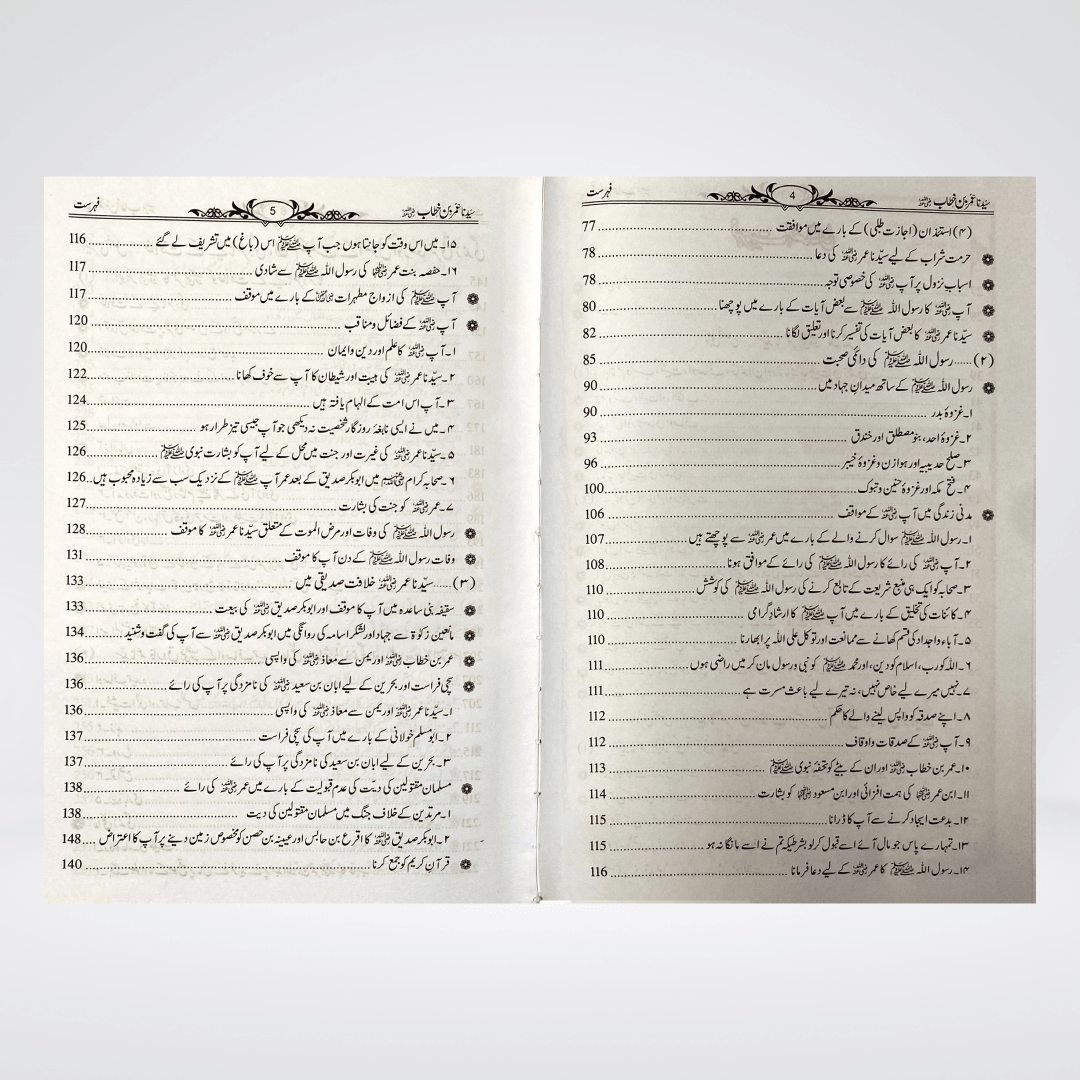 سیدنا عمر بن خطاب رضی اللہ عنہ 4 فہرست
(۴) استئذان (اجازت طلبی) کے بارے میں موافقت 77
حرمت شراب کے لیے سیّدنا عمر رضی اللہ عنہ کی دعا 78
اسباب نزول پر آپ رضی اللہ عنہ کی خصوصی توجہ 78
آپ رضی اللہ عنہ کا رسول اللہ ﷺ سے بعض آیات کے بارے میں پوچھنا 80
سیّدنا عمر رضی اللہ عنہ کا بعض آیات کی تفسیر کرنا اور تعلیق لگانا 82
(۲) ..... رسول اللہ ﷺ کی دائمی صحبت 85
رسول اللہ ﷺ کے ساتھ میدانِ جہاد میں 90
۱۔ غزوۂ بدر 90
۲۔ غزوۂ احد، بنو مصطلق اور خندق 93
۳۔ صلح حدیبیہ اور ہوازن و غزوۂ خیبر 96
۴۔ فتح مکہ اور غزوۂ حنین و تبوک 100
مدنی زندگی میں آپ رضی اللہ عنہ کے مواقف 106
۱۔ رسول اللہ ﷺ سوال کرنے والے کے بارے میں عمر رضی اللہ عنہ سے پوچھتے ہیں 107
۲۔ آپ رضی اللہ عنہ کی رائے کا رسول اللہ ﷺ کی رائے کے موافق ہونا 108
۳۔ صحابہ کو ایک ہی منبع شریعت کے تابع کرنے کی رسول اللہ ﷺ کی کوشش 110
۴۔ کائنات کی تخلیق کے بارے میں آپ ﷺ کا ارشادِ گرامی 110
۵۔ آباء و اجداد کی قسم کھانے سے ممانعت اور توکل علی اللہ پر ابھارنا 110
۶۔ اللہ کو رب، اسلام کو دین، اور محمد ﷺ کو نبی و رسول مان کر میں راضی ہوں 111
۷۔ نہیں میرے لیے خاص نہیں، نہ تیرے لیے باعث مسرت ہے 111
۸۔ اپنے صدقہ کو واپس لینے والے کا حکم 112
۹۔ آپ رضی اللہ عنہ کے صدقات و اوقاف 112
۱۰۔ عمر بن خطاب رضی اللہ عنہ اور ان کے بیٹے کو تحفۂ نبوی ﷺ 113
۱۱۔ ابن عمر رضی اللہ عنہما کی ہمت افزائی اور ابن مسعود رضی اللہ عنہ کو بشارت 114
۱۲۔ بدعت ایجاد کرنے سے آپ کا ڈرانا 115
۱۳۔ تمہارے پاس جو مال آئے اسے قبول کرلو بشرطیکہ تم نے اسے مانگا نہ ہو 115
۱۴۔ رسول اللہ ﷺ کا عمر رضی اللہ عنہ کے لیے دعا فرمانا 116
سیدنا عمر بن خطاب رضی اللہ عنہ 5 فہرست
۱۵۔ میں اس وقت کو جانتا ہوں جب آپ ﷺ اس (باغ) میں تشریف لے گئے 116
۱۶۔ حفصہ بنت عمر رضی اللہ عنہا کی رسول اللہ ﷺ سے شادی 117
آپ ﷺ کی ازواج مطہرات رضی اللہ عنہن کے بارے میں موقف 117
آپ رضی اللہ عنہ کے فضائل و مناقب 120
۱۔ آپ رضی اللہ عنہ کا علم اور دین و ایمان 120
۲۔ سیّدنا عمر رضی اللہ عنہ کی ہیبت اور شیطان کا آپ سے خوف کھانا 122
۳۔ آپ اس امت کے الہام یافتہ ہیں 124
۴۔ میں نے ایسی نابغۂ روزگار شخصیت نہ دیکھی جو آپ جیسی تیز طرار ہو 125
۵۔ سیّدنا عمر رضی اللہ عنہ کی غیرت اور جنت میں محل کے لیے آپ کو بشارت نبوی ﷺ 126
۶۔ صحابہ کرام رضی اللہ عنہم میں ابوبکر صدیق کے بعد عمر آپ ﷺ کے نزدیک سب سے زیادہ محبوب ہیں 126
۷۔ عمر رضی اللہ عنہ کو جنت کی بشارت 127
رسول اللہ ﷺ کی وفات اور مرض الموت کے متعلق سیّدنا عمر رضی اللہ عنہ کا موقف 128
وفات رسول اللہ ﷺ کے دن آپ کا موقف 131
(۳) ..... سیّدنا عمر رضی اللہ عنہ خلافت صدیقی میں 133
سقیفہ بنی ساعدہ میں آپ کا موقف اور ابوبکر صدیق رضی اللہ عنہ کی بیعت 133
مانعین زکوٰۃ سے جہاد اور لشکر اسامہ کی روانگی میں ابوبکر صدیق رضی اللہ عنہ سے آپ کی گفت و شنید 134
عمر بن خطاب رضی اللہ عنہ اور یمن سے معاذ رضی اللہ عنہ کی واپسی 136
سچی فراست اور بحرین کے لیے ابان بن سعید رضی اللہ عنہ کی نامزدگی پر آپ کی رائے 136
۱۔ سیّدنا عمر رضی اللہ عنہ اور یمن سے معاذ رضی اللہ عنہ کی واپسی 136
۲۔ ابو مسلم خولانی کے بارے میں آپ کی سچی فراست 137
۳۔ بحرین کے لیے ابان بن سعید کی نامزدگی پر آپ کی رائے 137
مسلمان مقتولین کی دیت کی عدم قبولیت کے بارے میں عمر رضی اللہ عنہ کی رائے 138
۱۔ مرتدین کے خلاف جنگ میں مسلمان مقتولین کی دیت 138
۲۔ ابوبکر صدیق رضی اللہ عنہ کا اقرع بن حابس اور عیینہ بن حصن کو مخصوص زمین دینے پر آپ کا اعتراض 148
قرآنِ کریم کو جمع کرنا 140